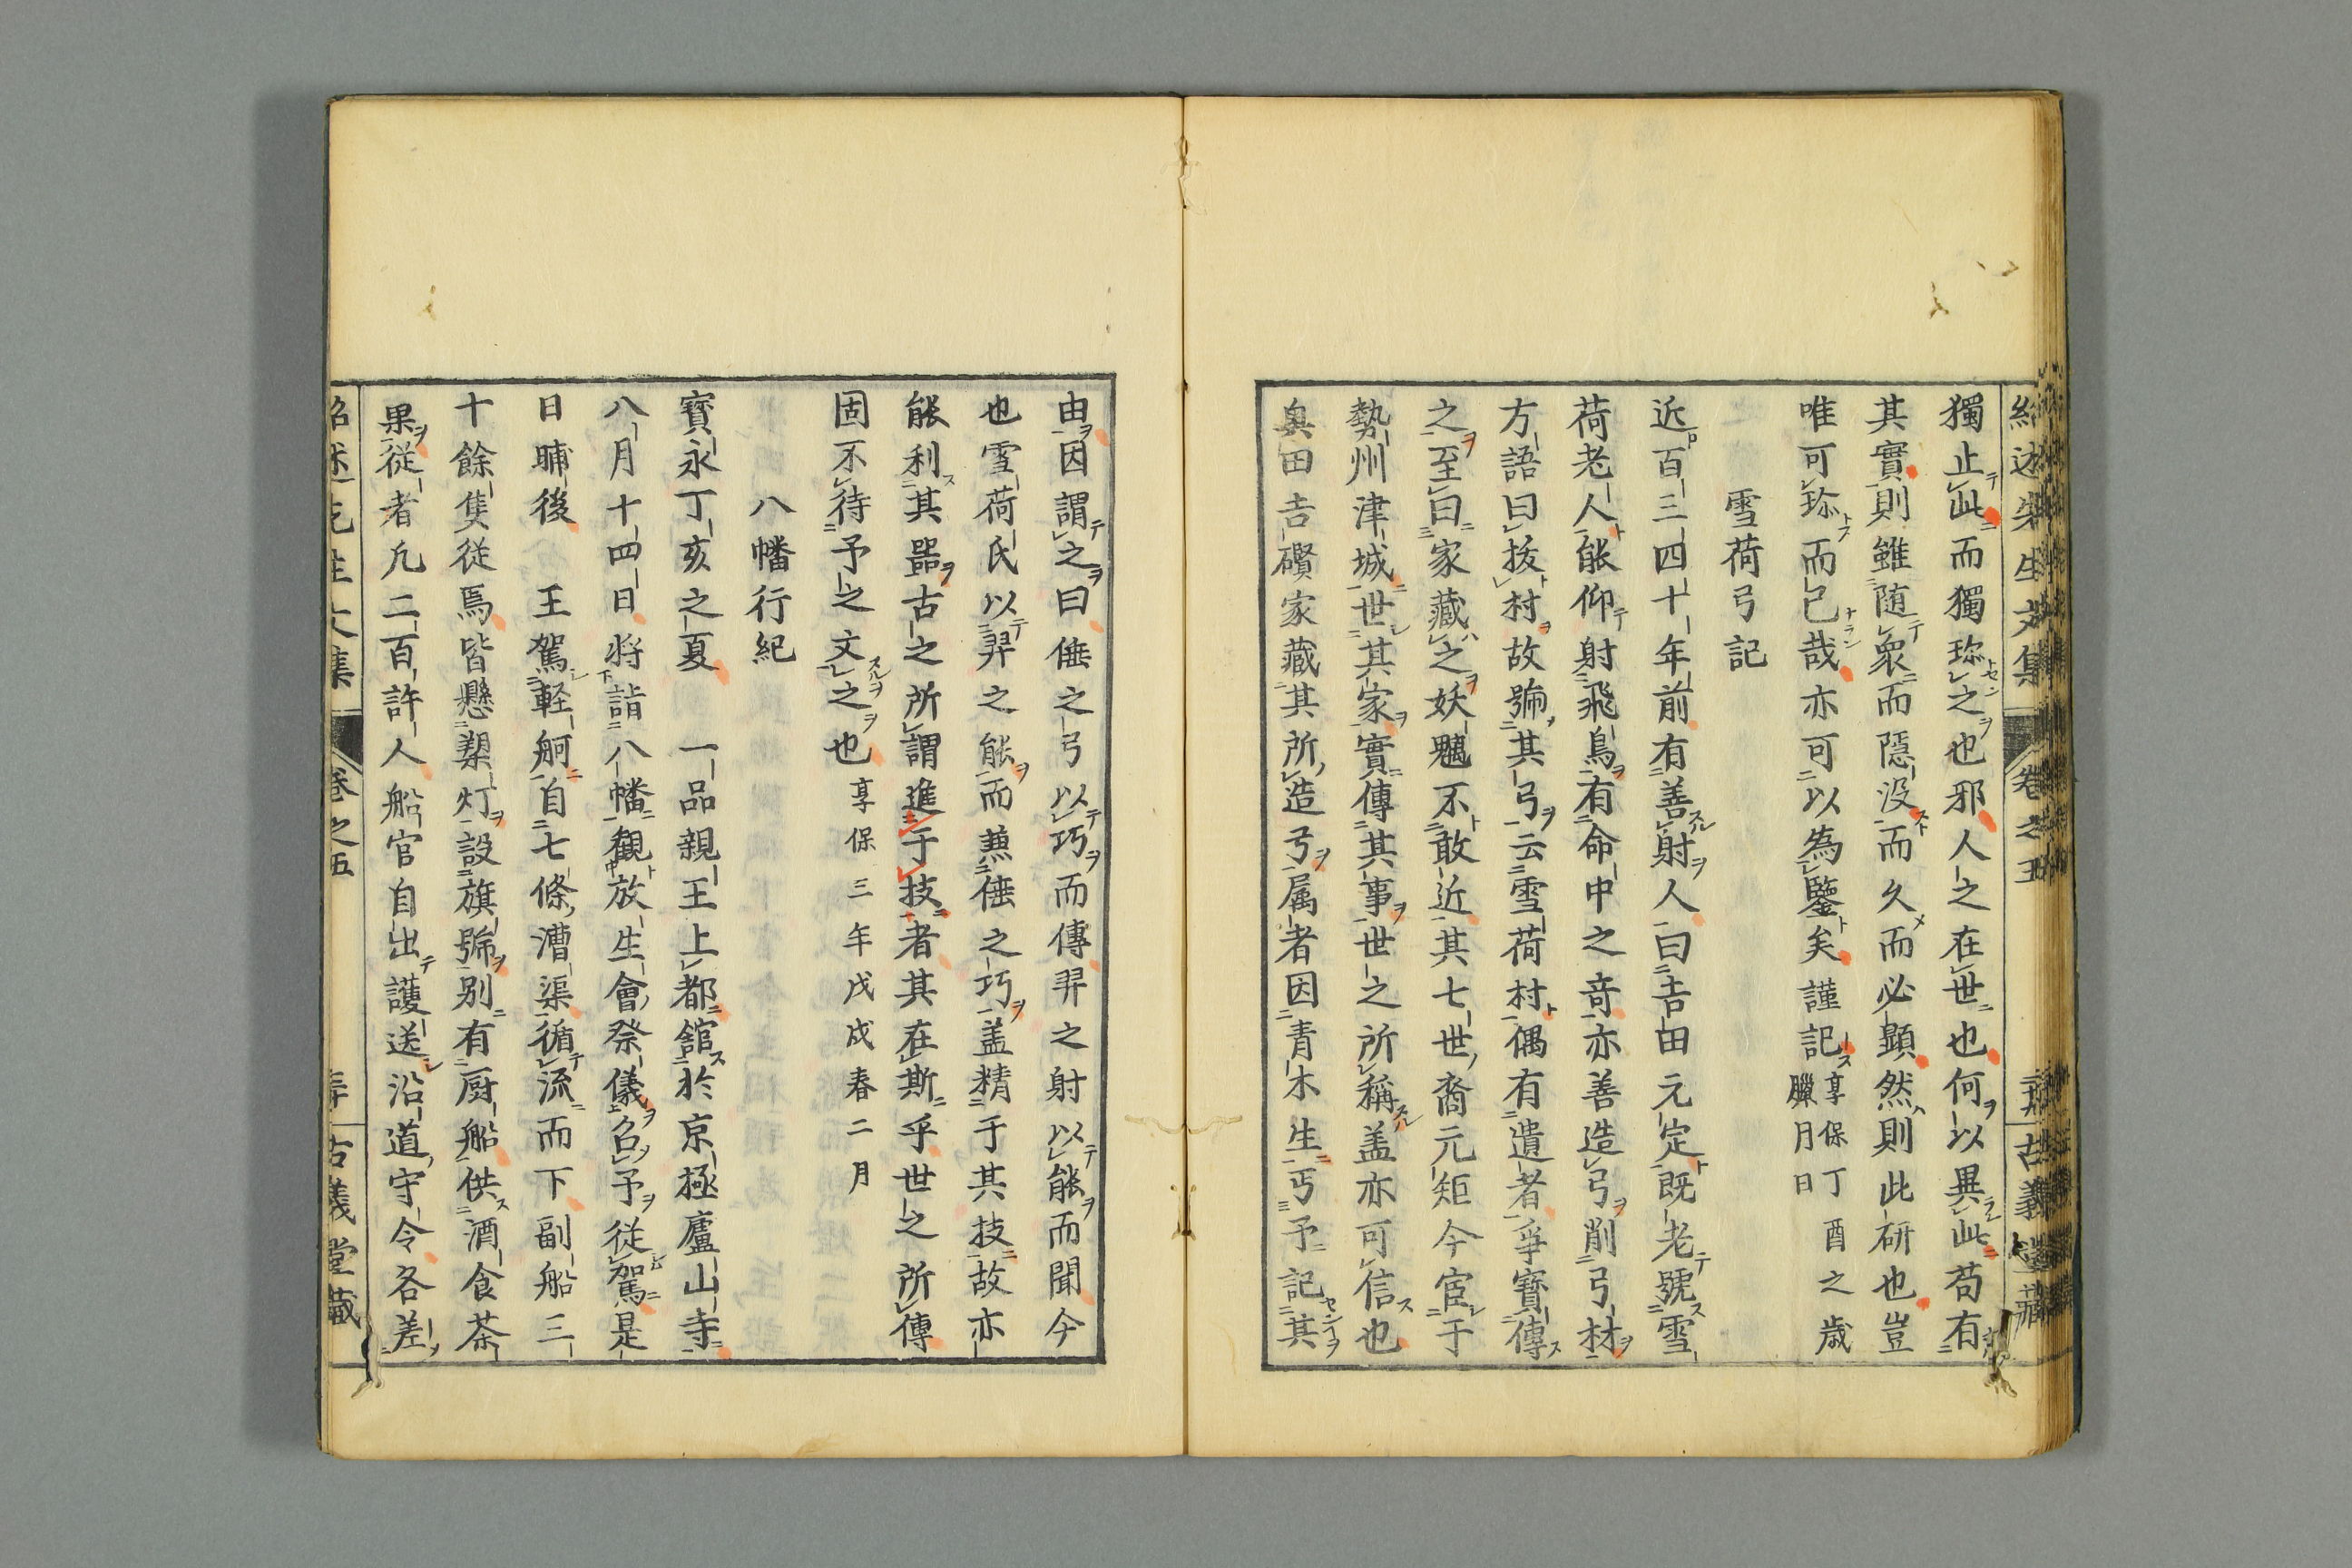 獨止此而獨珎之也邪人之在世也何以異此苟有
其實則雖随衆而隠没而久而必顯然則此研也豈
唯可珎而已哉亦可以為鑒矣謹記享保丁酉之歳
臘月日
雪荷弓記
近百三四十年前有善射人曰吉田元定既老號雪
荷老人能仰射飛鳥有命中之竒亦善造弓削弓材
方語曰拔村故号其弓云雪荷村偶有遺者爭寳傳
之至曰家藏之妖魑不敢近其七世裔元矩今宦于
勢州津城世其家實傳其事世之所稱盖亦可信也
與田吉礥家藏其所造弓属者因青木生丐予記其
由因謂之曰倕之弓以巧而傳羿之射以能而聞今
也雪荷氏以羿之能而兼倕之巧盖精于其技故亦
能利其噐古之所謂進于技者其在斯乎世之所傳
固不待予之文之也享保三年戊戌春二月
八幡行紀
寳永丁亥之夏　一品親王上都舘於京極廬山寺
八月十四日将詣八幡觀放生會祭儀召予從駕是
日晡後　王駕軽舸自七條漕渠循流而下副船三
十餘隻從焉皆懸㓞灯設旗號别有厨船供酒食茶
果從者凢二百許人船官自出護送沿道守令各差
卷之五
古義堂藏